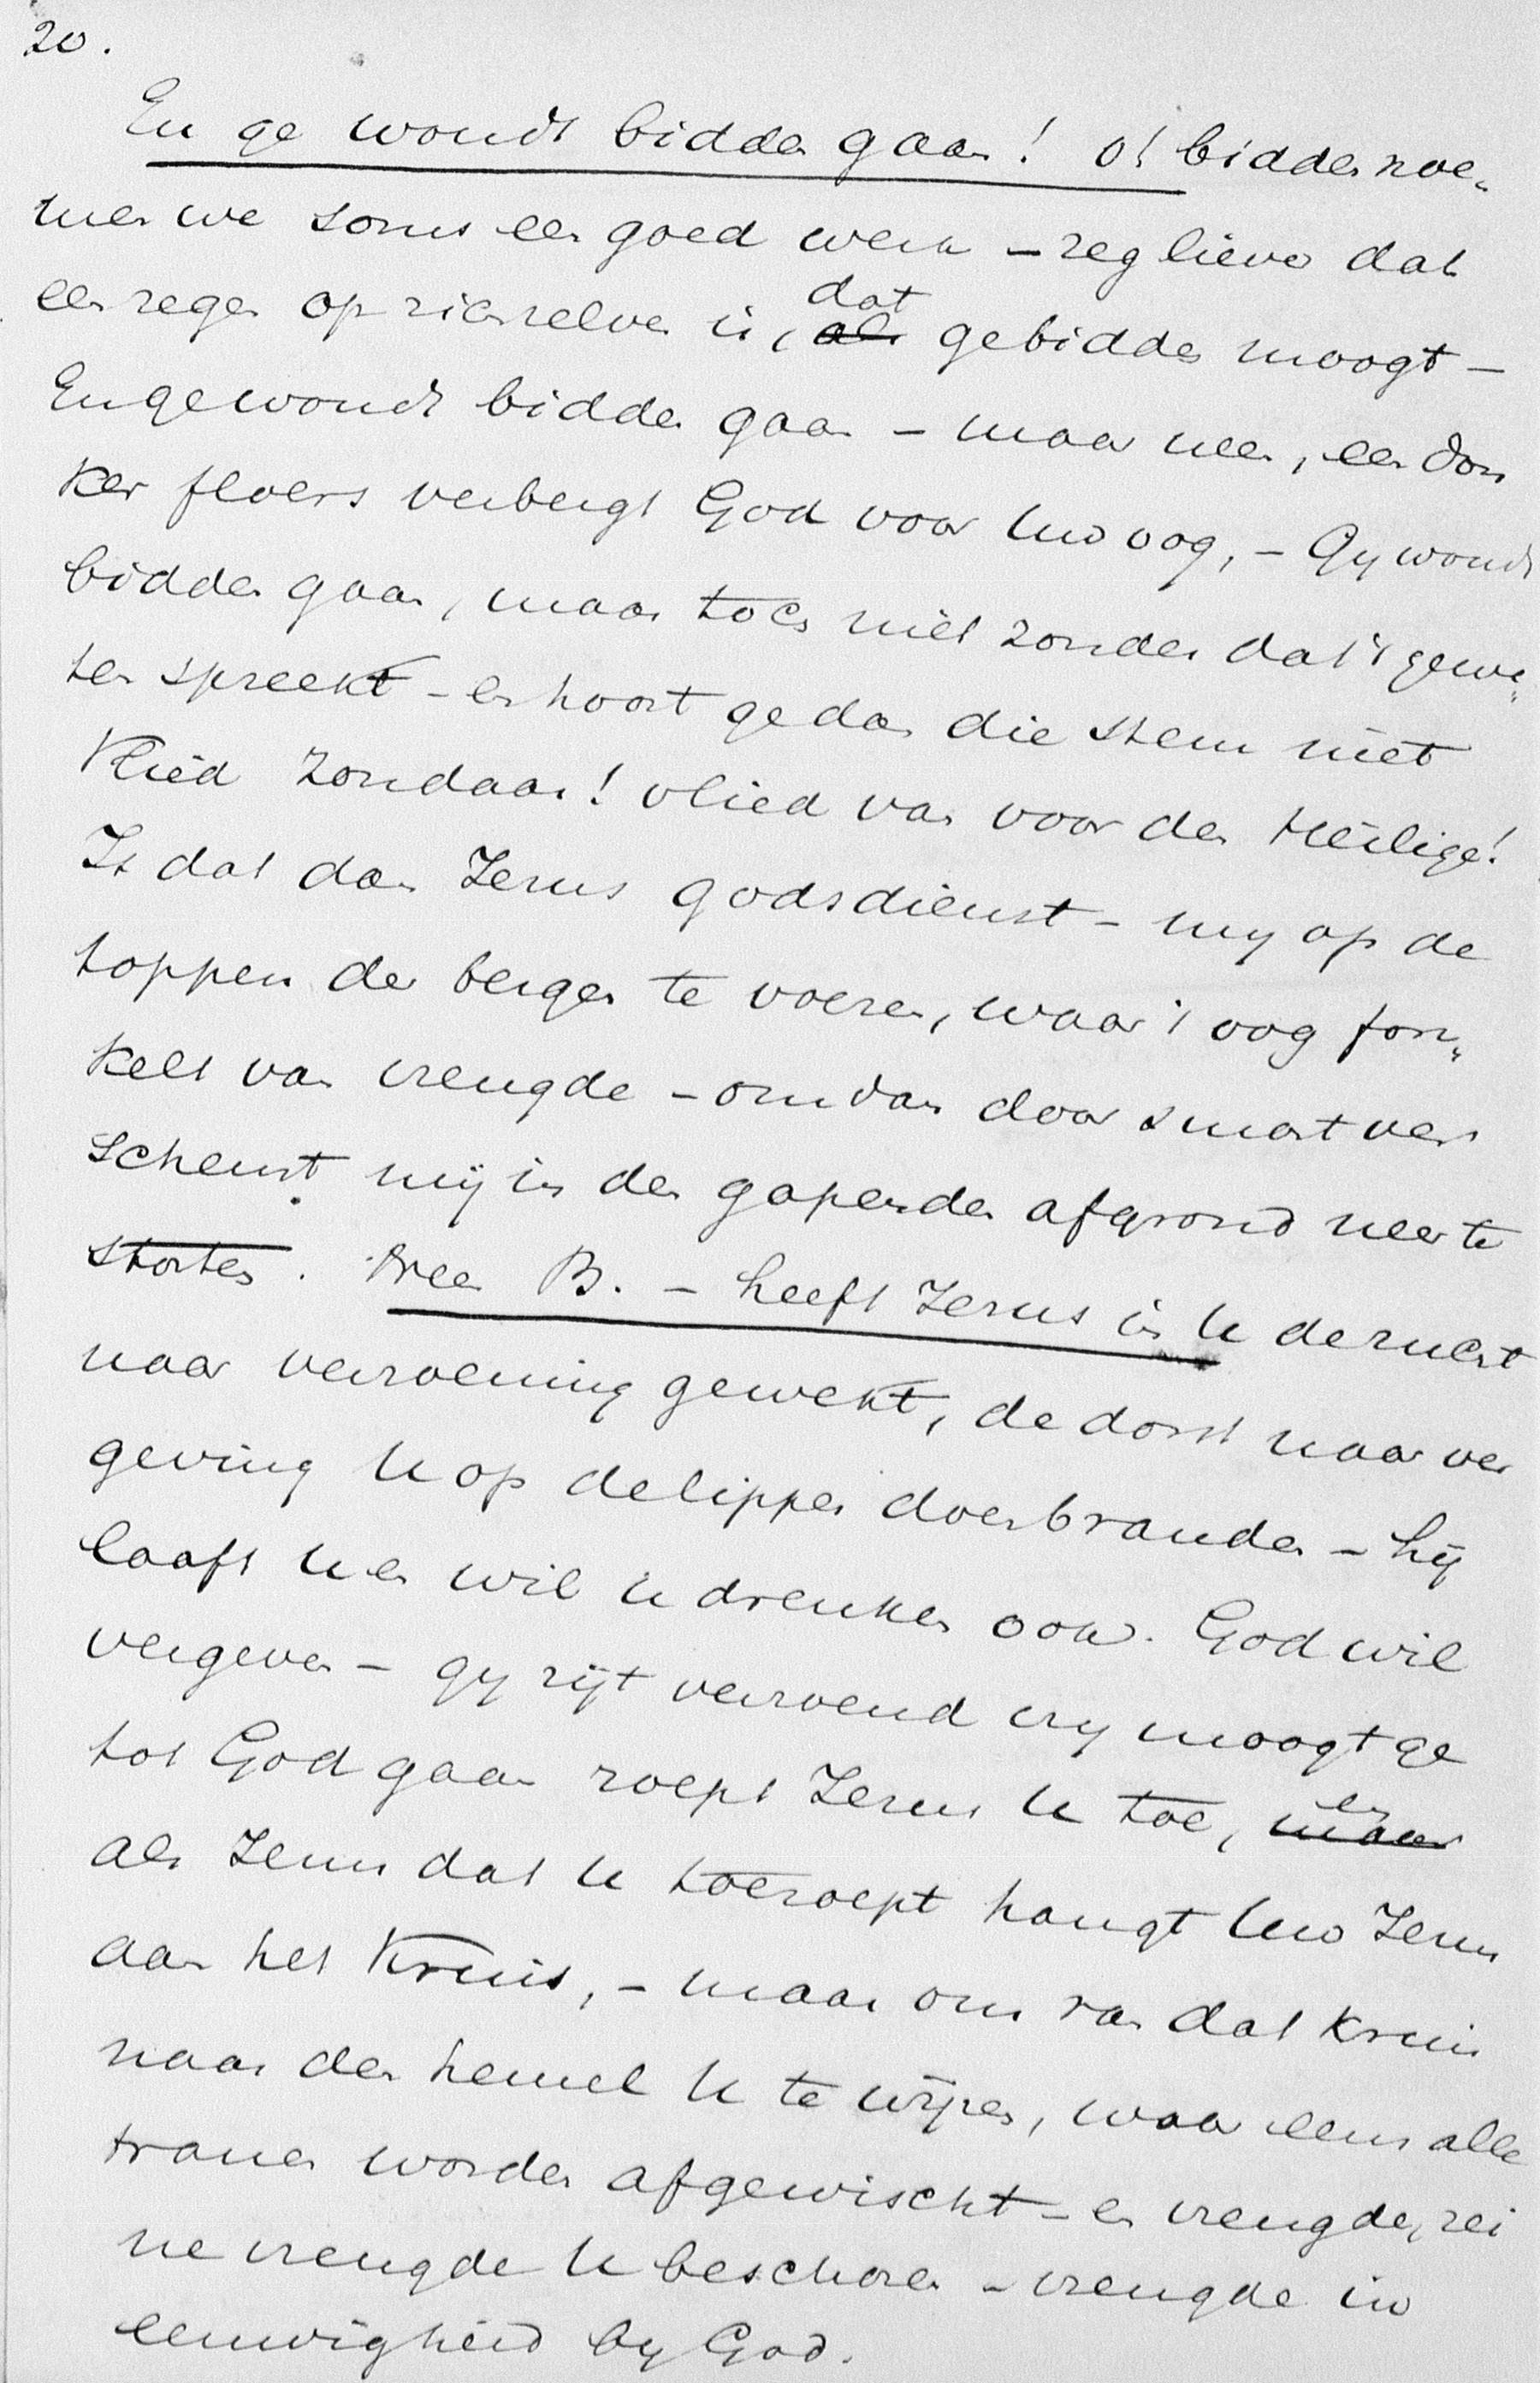 20.
En ge woudt bidden gaan! o! bidden noe„
men we soms een goed werk – zeg liever dat
een zegen op zichzelve is, ~~als~~ dat ge bidden moogt –
En ge woudt bidden gaan – maar neen, een don
ker floers verbergt God voor Uw oog, – Gy woudt
bidden gaan, maar toch niet zonder dat 't gewe„
ten spreekt – en hoort ge dan die stem niet
Vlied zondaar! vlied van voor den Heilige!
Is dat dan Jezus godsdienst – my op de
toppen der bergen te voeren, waar 't oog fon„
kelt van vreugde – om dan door smart ver
scheurt mij in den gapenden afgrond neer te
storten. Neen B. – heeft Jezus in U de zucht
naar verzoening gewekt, de dorst naar ver
geving U op de lippen doen branden – hij
laaft U en wil U drenken ook. God wil
vergeven – gy zijt verzoend vry moogt ge
tot God gaan roept Jezus U toe, ~~maar~~ en
als Jezus dat U toeroept hangt Uw Jezus
aan het Kruis, – maar om van dat Kruis
naar den hemel U te wijzen, waar eens alle
tranen worden afgewischt – en vreugde, rei
ne vreugde U beschoren – vreugde in
eeuwigheid by God.